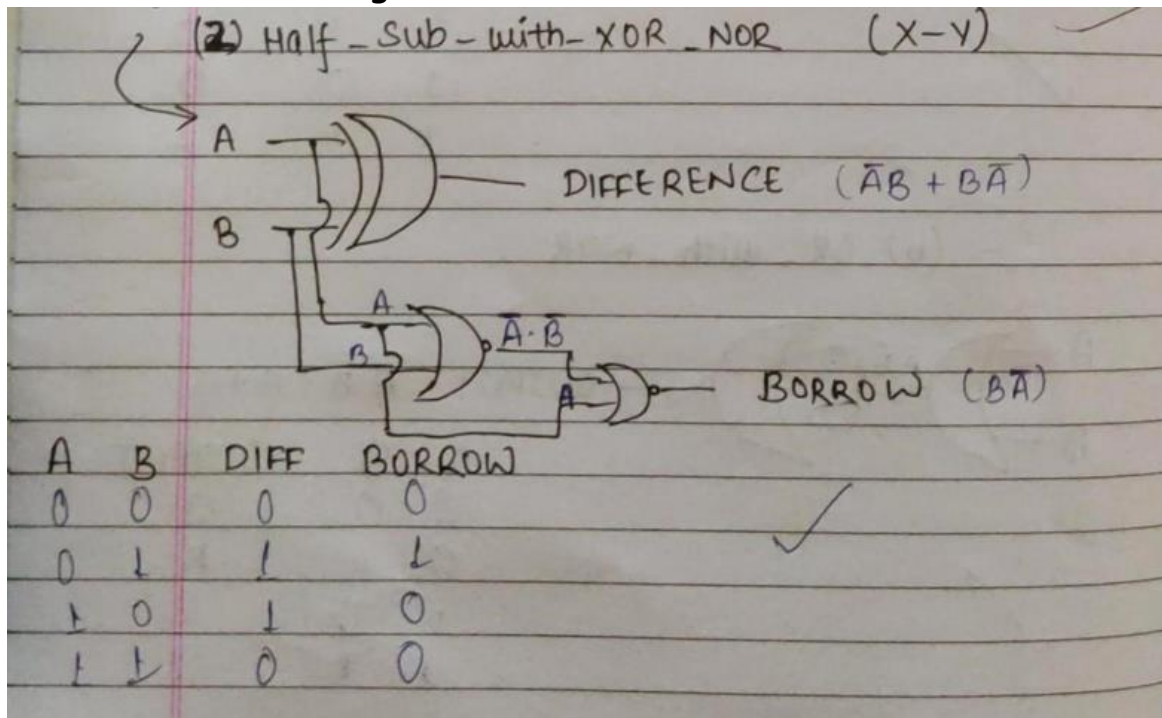 (2) Half-Sub-with-XOR-NOR (X-Y)
A
DIFFERENCE (A̅B + BA̅)
B
A
B
A̅·B̅
A
BORROW (BA̅)
A B DIFF BORROW
0 0 0 0
0 1 1 1
1 0 1 0
1 1 0 0